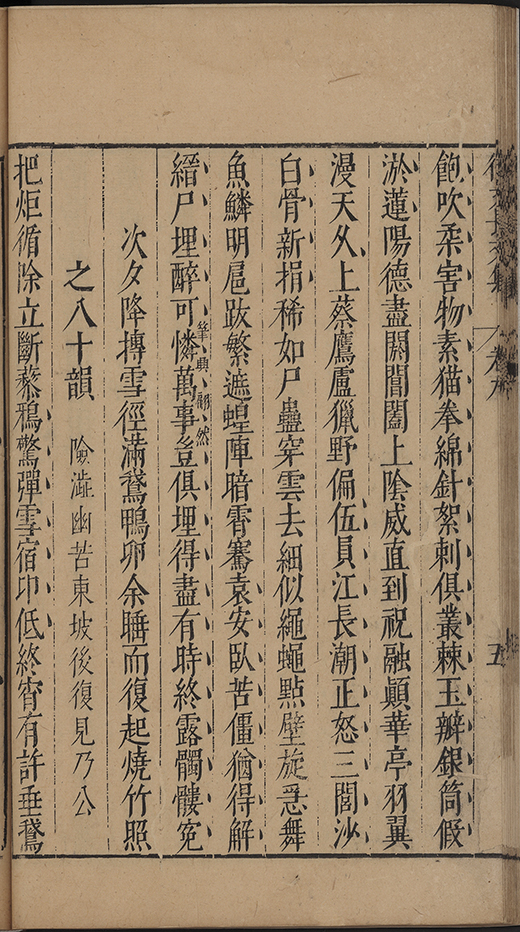 五
飽吹柔害物素猫拳綿針絮刺俱叢棘玉瓣銀筒假
淤蓮陽德盡閼閶闔上陰威直到祝融顛華亭羽翼
漫天久上蔡鷹盧獵野偏伍員江長潮正怒三閭沙
白骨新捐稀如尸蠱穿雲去細似繩蠅點壁旋舞
魚鱗明扈跋繁遮蝗陣暗霄騫袁安臥苦僵猶得解
縉尸埋醉可憐萬事豈俱埋得盡有時終露髑髏冤
筆典翩然
次夕降摶雪徑滿鵞鴨卵余睡而復起燒竹照
之八十韻 險澁幽苦東坡後復見乃公
把炬循除立斷藜鴉驚彈雪宿卬低終宵有許垂鵞